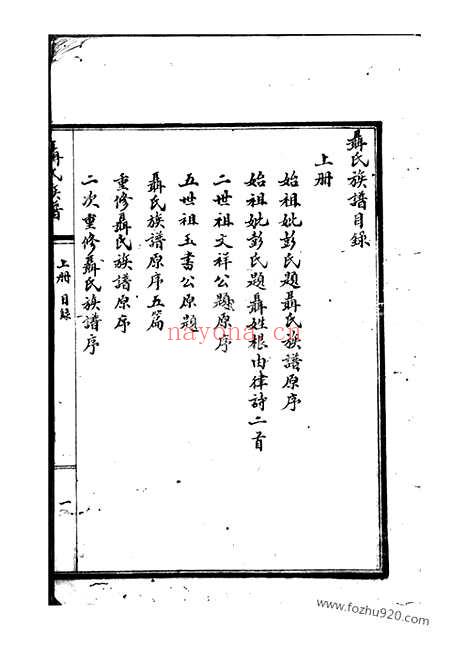 聶氏族譜目録
上册
始祖妣彭氏題聶氏族譜原序
始祖妣彭氏題聶姓根由律詩二首
二世祖文祥公題原序
五世祖玉書公原題
聶氏族譜原序五篇
重修聶氏族譜原序
二次重修聶氏族譜序
聶氏族譜
上册 目録
一
nayona.cn
www.fozhu920.com